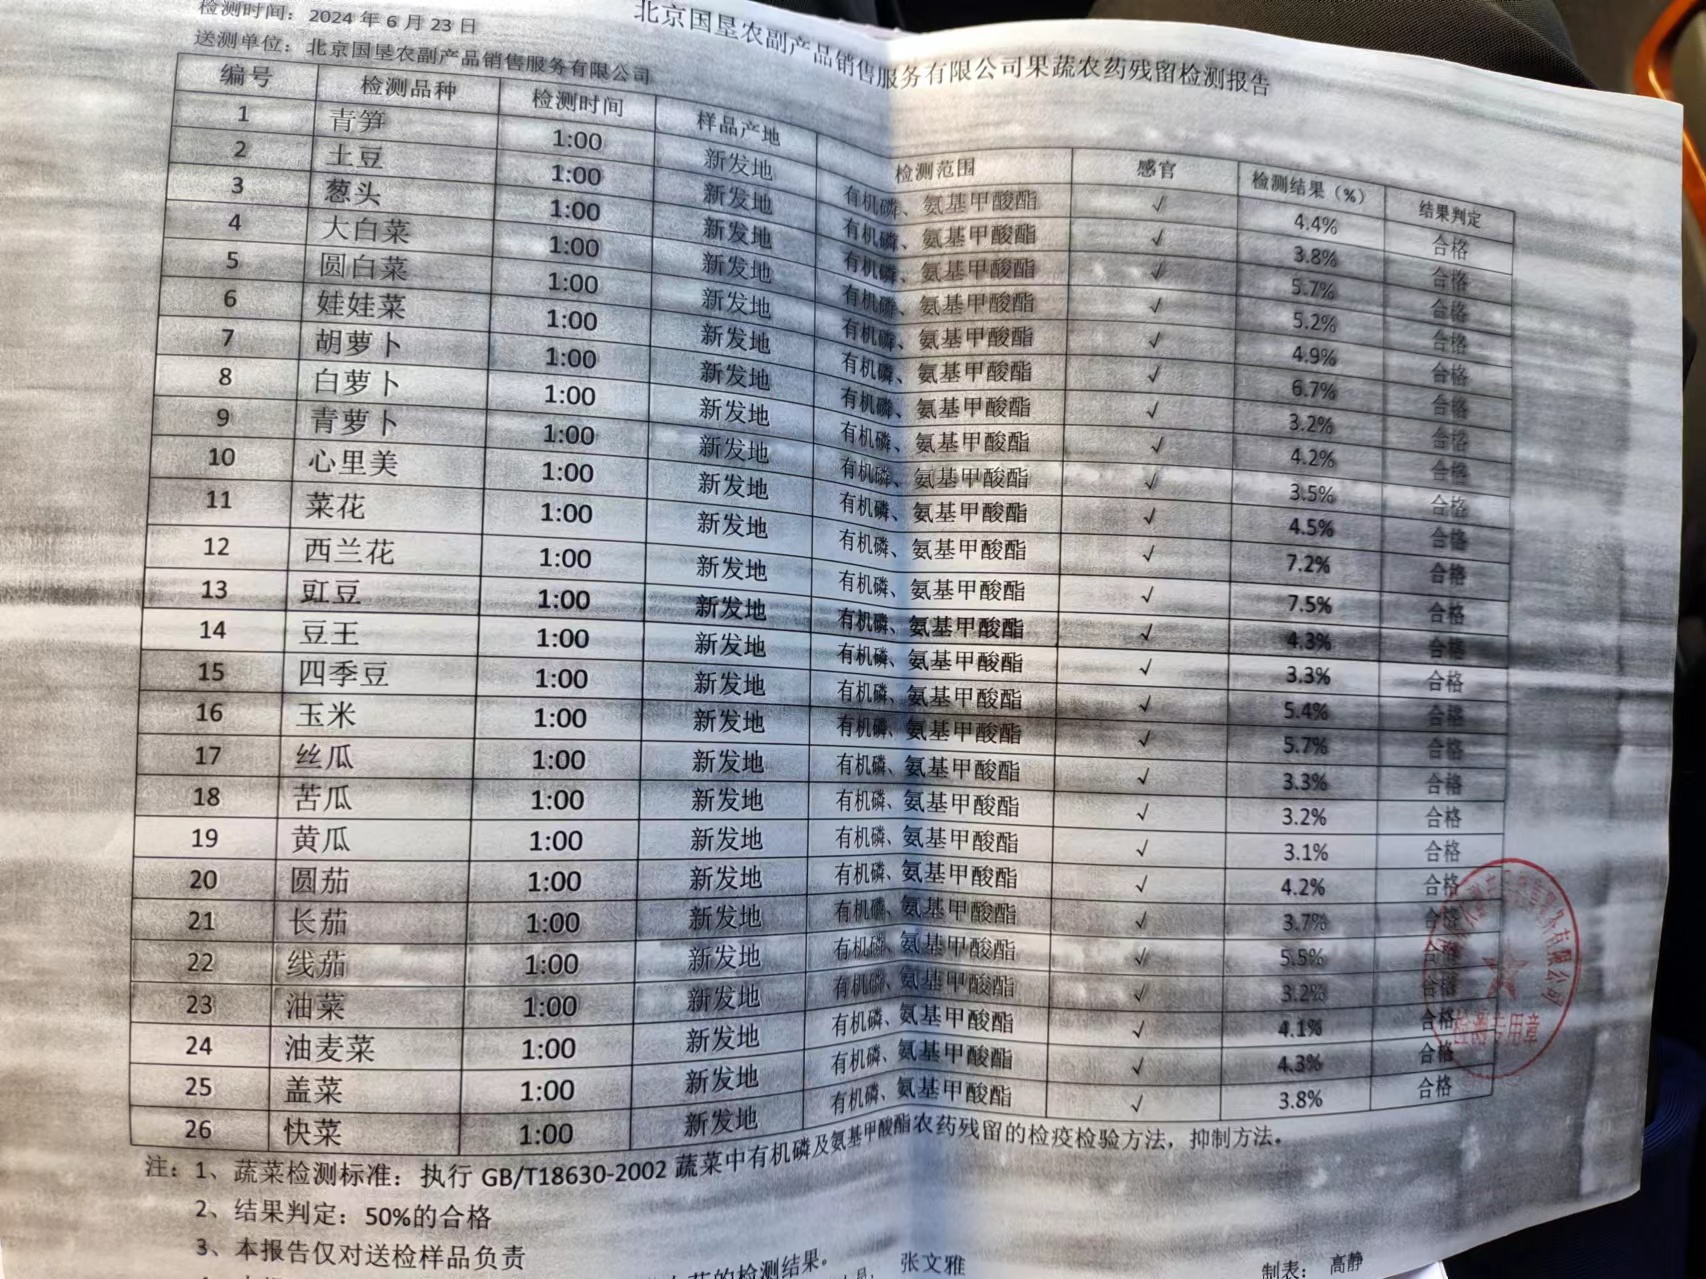 北京国垦农副产品销售服务有限公司果蔬农药残留检测报告
检测时间：2024 年 6 月 23 日
送测单位：北京国垦农副产品销售服务有限公司
编号 检测品种 检测时间 样品产地 检测范围 感官 检测结果（%） 结果判定
1 青笋 1:00 新发地 有机磷、氨基甲酸酯 √ 4.4% 合格
2 土豆 1:00 新发地 有机磷、氨基甲酸酯 √ 3.8% 合格
3 葱头 1:00 新发地 有机磷、氨基甲酸酯 √ 5.7% 合格
4 大白菜 1:00 新发地 有机磷、氨基甲酸酯 √ 5.2% 合格
5 圆白菜 1:00 新发地 有机磷、氨基甲酸酯 √ 4.9% 合格
6 娃娃菜 1:00 新发地 有机磷、氨基甲酸酯 √ 6.7% 合格
7 胡萝卜 1:00 新发地 有机磷、氨基甲酸酯 √ 3.2% 合格
8 白萝卜 1:00 新发地 有机磷、氨基甲酸酯 √ 4.2% 合格
9 青萝卜 1:00 新发地 有机磷、氨基甲酸酯 √ 3.5% 合格
10 心里美 1:00 新发地 有机磷、氨基甲酸酯 √ 4.5% 合格
11 菜花 1:00 新发地 有机磷、氨基甲酸酯 √ 7.2% 合格
12 西兰花 1:00 新发地 有机磷、氨基甲酸酯 √ 7.5% 合格
13 豇豆 1:00 新发地 有机磷、氨基甲酸酯 √ 4.3% 合格
14 豆王 1:00 新发地 有机磷、氨基甲酸酯 √ 3.3% 合格
15 四季豆 1:00 新发地 有机磷、氨基甲酸酯 √ 5.4% 合格
16 玉米 1:00 新发地 有机磷、氨基甲酸酯 √ 5.7% 合格
17 丝瓜 1:00 新发地 有机磷、氨基甲酸酯 √ 3.3% 合格
18 苦瓜 1:00 新发地 有机磷、氨基甲酸酯 √ 3.2% 合格
19 黄瓜 1:00 新发地 有机磷、氨基甲酸酯 √ 3.1% 合格
20 圆茄 1:00 新发地 有机磷、氨基甲酸酯 √ 4.2% 合格
21 长茄 1:00 新发地 有机磷、氨基甲酸酯 √ 3.7% 合格
22 线茄 1:00 新发地 有机磷、氨基甲酸酯 √ 5.5% 合格
23 油菜 1:00 新发地 有机磷、氨基甲酸酯 √ 3.2% 合格
24 油麦菜 1:00 新发地 有机磷、氨基甲酸酯 √ 4.1% 合格
25 盖菜 1:00 新发地 有机磷、氨基甲酸酯 √ 4.3% 合格
26 快菜 1:00 新发地 有机磷、氨基甲酸酯 √ 3.8% 合格
检测专用章
注：1、蔬菜检测标准：执行 GB/T18630-2002 蔬菜中有机磷及氨基甲酸酯农药残留的检疫检验方法，抑制方法。
2、结果判定：50%的合格
3、本报告仅对送检样品负责
的检测结果。
张文雅 制表：高静